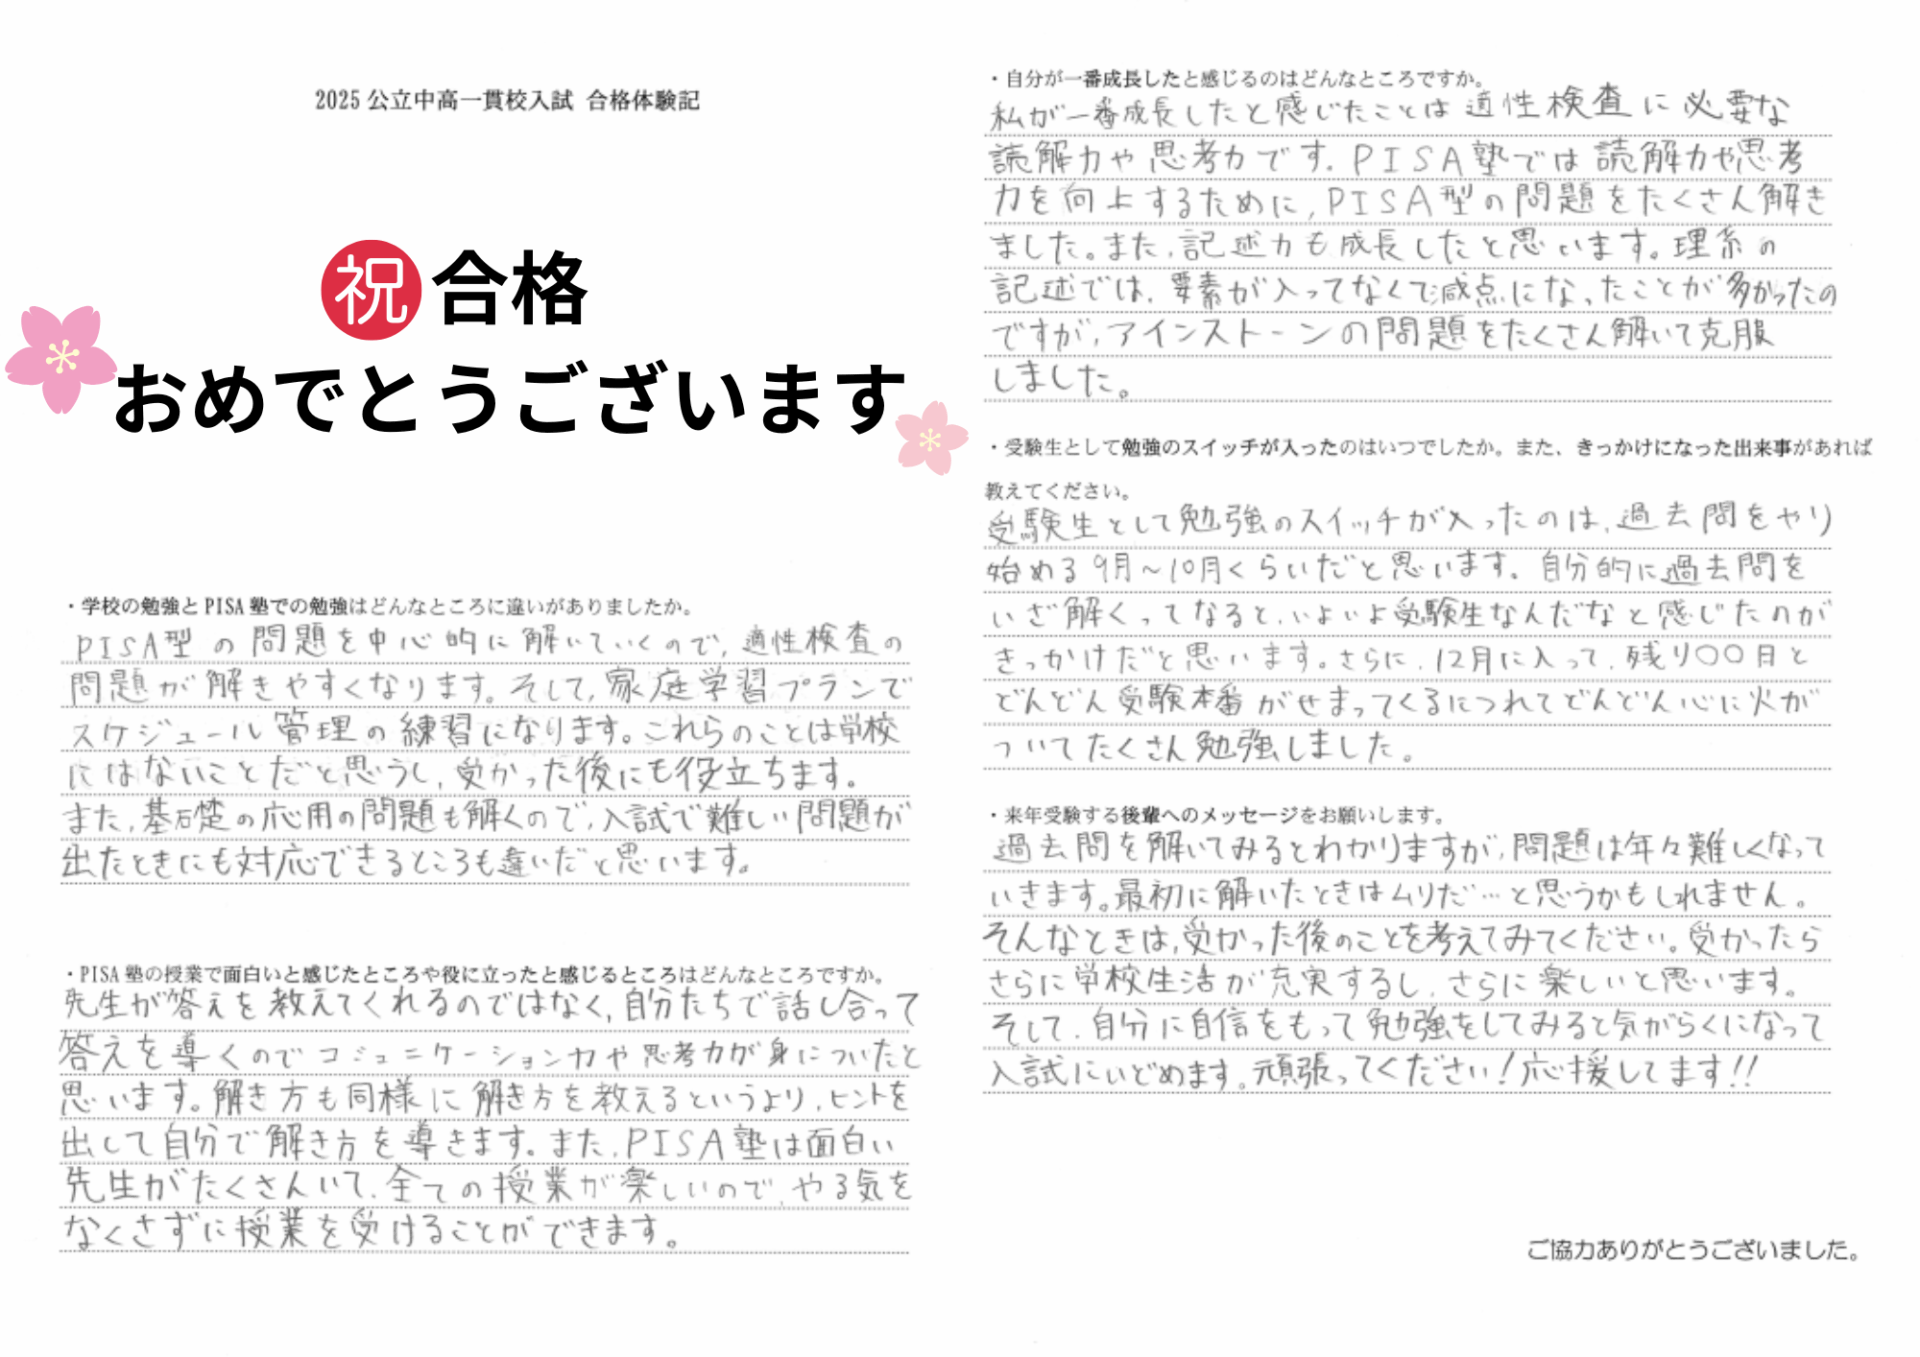 2025 公立中高一貫校入試 合格体験記
祝 合格
おめでとうございます
・学校の勉強と PISA 塾での勉強はどんなところに違いがありましたか。
PISA型の問題を中心的に解いていくので、適性検査の
問題が解きやすくなります。そして、家庭学習プランで
スケジュール管理の練習になります。これらのことは学校
にはないことだと思うし、受かった後にも役立ちます。
また、基礎の応用の問題も解くので、入試で難しい問題が
出たときにも対応できるところも違いだと思います。
・PISA 塾の授業で面白いと感じたところや役に立ったと感じるところはどんなところですか。
先生が答えを教えてくれるのではなく、自分たちで話し合って
答えを導くのでコミュニケーション力や思考力が身についたと
思います。解き方も同様に解き方を教えるというより、ヒントを
出して自分で解き方を導きます。また、PISA塾は面白い
先生がたくさんいて、全ての授業が楽しいので、やる気を
なくさずに授業を受けることができます。
・自分が一番成長したと感じるのはどんなところですか。
私が一番成長したと感じたことは適性検査に必要な
読解力や思考力です。PISA塾では読解力や思考
力を向上するために、PISA型の問題をたくさん解き
ました。また、記述力も成長したと思います。理系の
記述では、要素が入ってなくて減点になったことが多かったの
ですが、アインストーンの問題をたくさん解いて克服
しました。
・受験生として勉強のスイッチが入ったのはいつでしたか。また、きっかけになった出来事があれば
教えてください。
受験生として勉強のスイッチが入ったのは、過去問をやり
始める9月〜10月くらいだと思います。自分的に過去問を
いざ解くってなると、いよいよ受験生なんだなと感じたのが
きっかけだと思います。さらに、12月に入って、残り〇〇日と
どんどん受験本番がせまってくるにつれてどんどん心に火が
ついてたくさん勉強しました。
・来年受験する後輩へのメッセージをお願いします。
過去問を解いてみるとわかりますが、問題は年々難しくなって
いきます。最初に解いたときはムリだ…と思うかもしれません。
そんなときは、受かった後のことを考えてみてください。受かったら
さらに学校生活が充実するし、さらに楽しいと思います。
そして、自分に自信をもって勉強をしてみると気がらくになって
入試にいどめます。頑張ってください！応援してます!!
ご協力ありがとうございました。